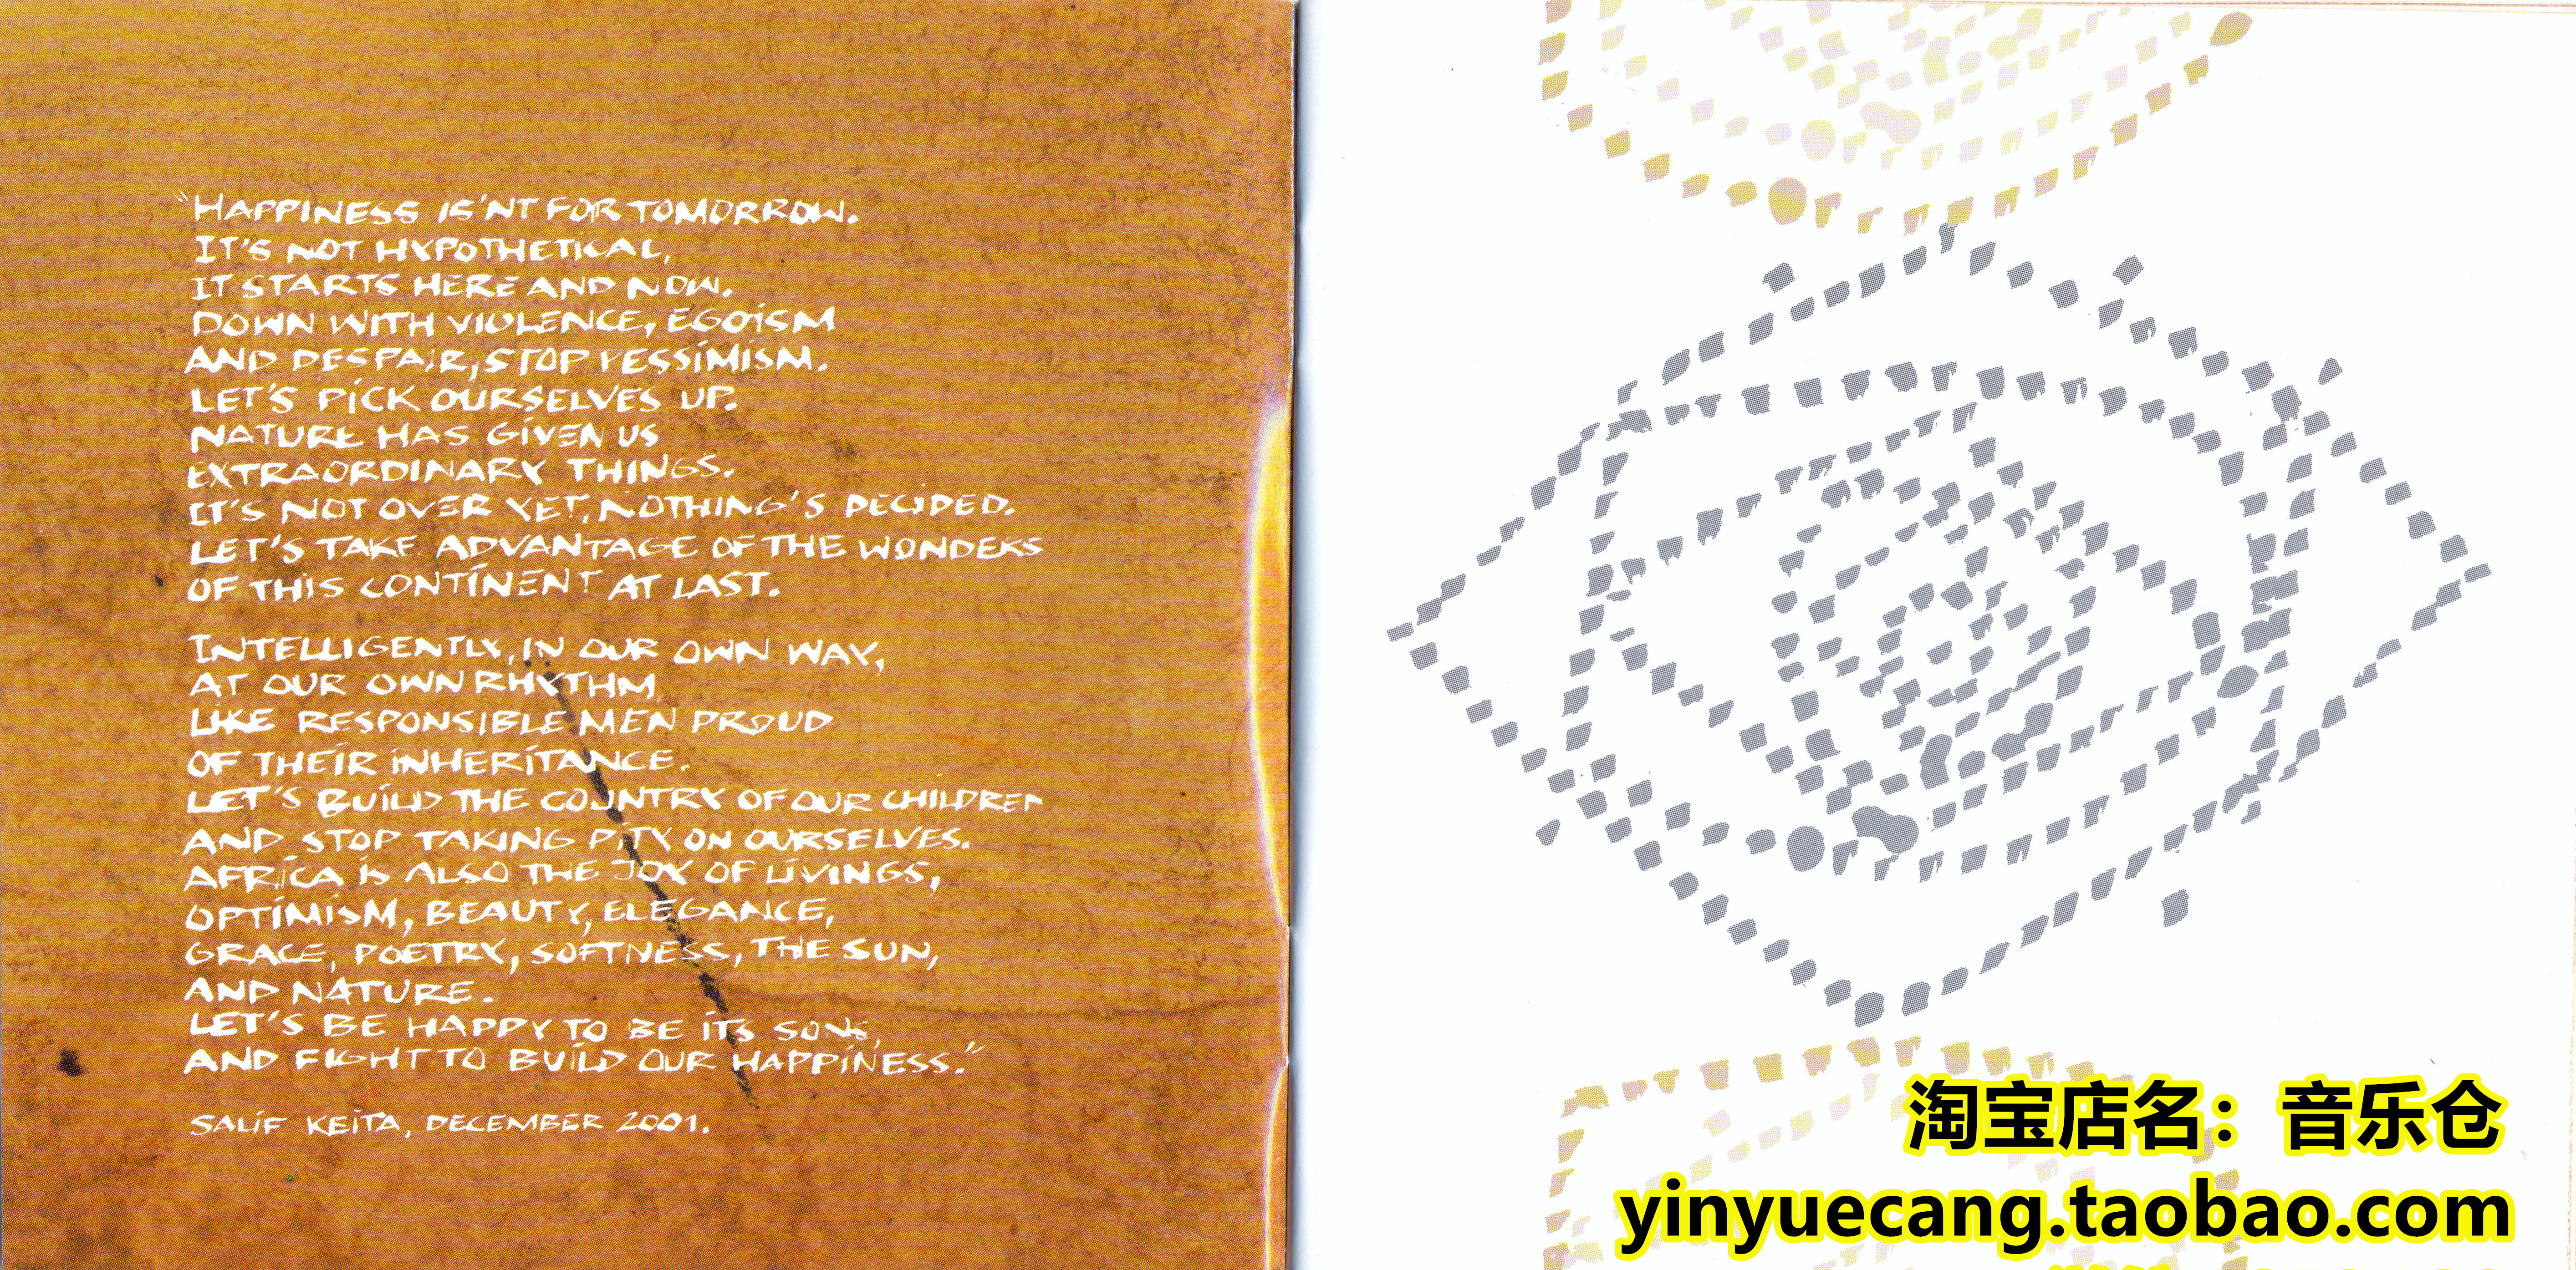 "HAPPINESS IS'NT FOR TOMORROW.
IT'S NOT HYPOTHETICAL,
IT STARTS HERE AND NOW.
DOWN WITH VIOLENCE, EGOISM
AND DESPAIR, STOP PESSIMISM.
LET'S PICK OURSELVES UP.
NATURE HAS GIVEN US
EXTRAORDINARY THINGS.
IT'S NOT OVER YET, NOTHING'S DECIDED.
LET'S TAKE ADVANTAGE OF THE WONDERS
OF THIS CONTINENT AT LAST.
INTELLIGENTLY, IN OUR OWN WAY,
AT OUR OWN RHYTHM
LIKE RESPONSIBLE MEN PROUD
OF THEIR INHERITANCE.
LET'S BUILD THE COUNTRY OF OUR CHILDREN
AND STOP TAKING PITY ON OURSELVES.
AFRICA IS ALSO THE JOY OF LIVINGS,
OPTIMISM, BEAUTY, ELEGANCE,
GRACE, POETRY, SOFTNESS, THE SUN,
AND NATURE.
LET'S BE HAPPY TO BE ITS SONS,
AND FIGHT TO BUILD OUR HAPPINESS."
SALIF KEITA, DECEMBER 2001.
淘宝店名：音乐仓
yinyuecang.taobao.com